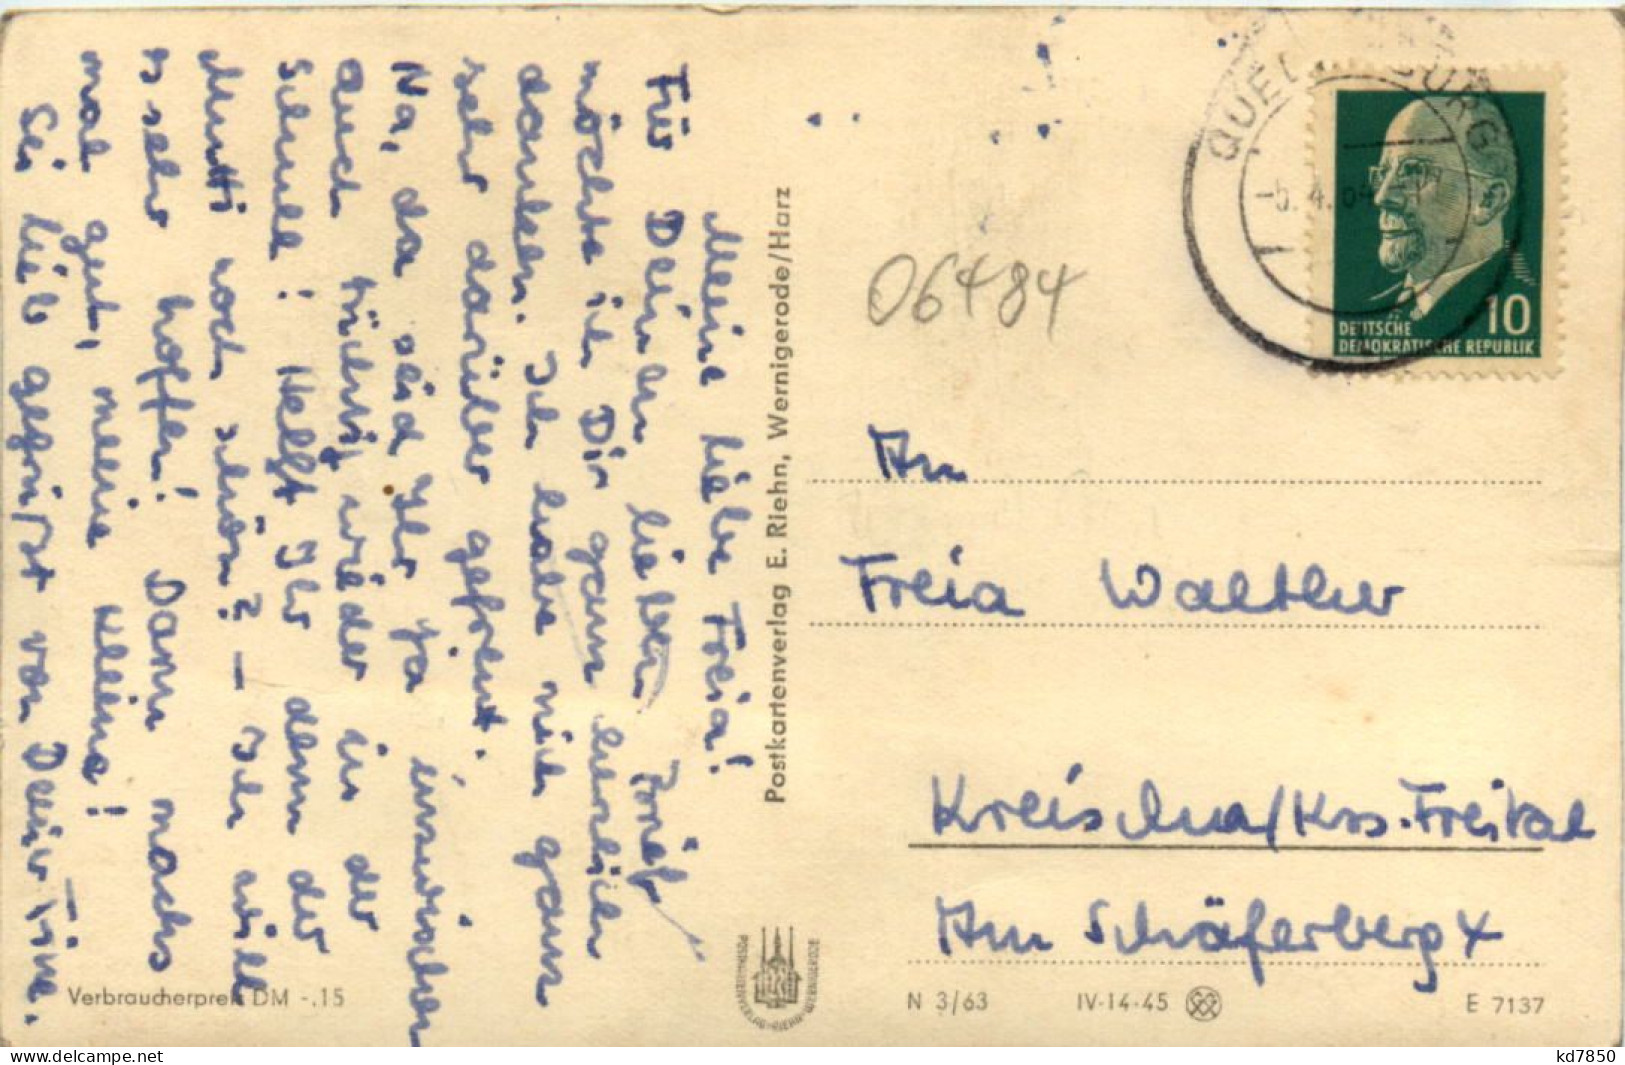 Meine liebe Freia!
Für Deinen lieben Brief
möchte ich Dir ganz herzlich
danken. Ich habe mich ganz
sehr darüber gefreut.
Na, da seid Ihr ja inzwischen
auch tüchtig wieder in der
Schule! Helft Ihr denn der
Mutti noch schön? – Ich will
es sehr hoffen! Dann machs
mal gut, meine Kleine!
Sei lieb gegrüsst von Deiner Tine.
Verbraucherpreis DM -.15
Postkartenverlag E. Riehn, Wernigerode/Harz
POSTKARTENVERLAG · RIEHN · WERNIGERODE
QUEDLINBURG
-5.4.64
10
DEUTSCHE
DEMOKRATISCHE REPUBLIK
06484
An
Freia Walther
Kreischa/Krs. Freital
Am Schäferberg 4
N 3/63 IV-14-45 E 7137
https://www.delcampe.net
kd7850